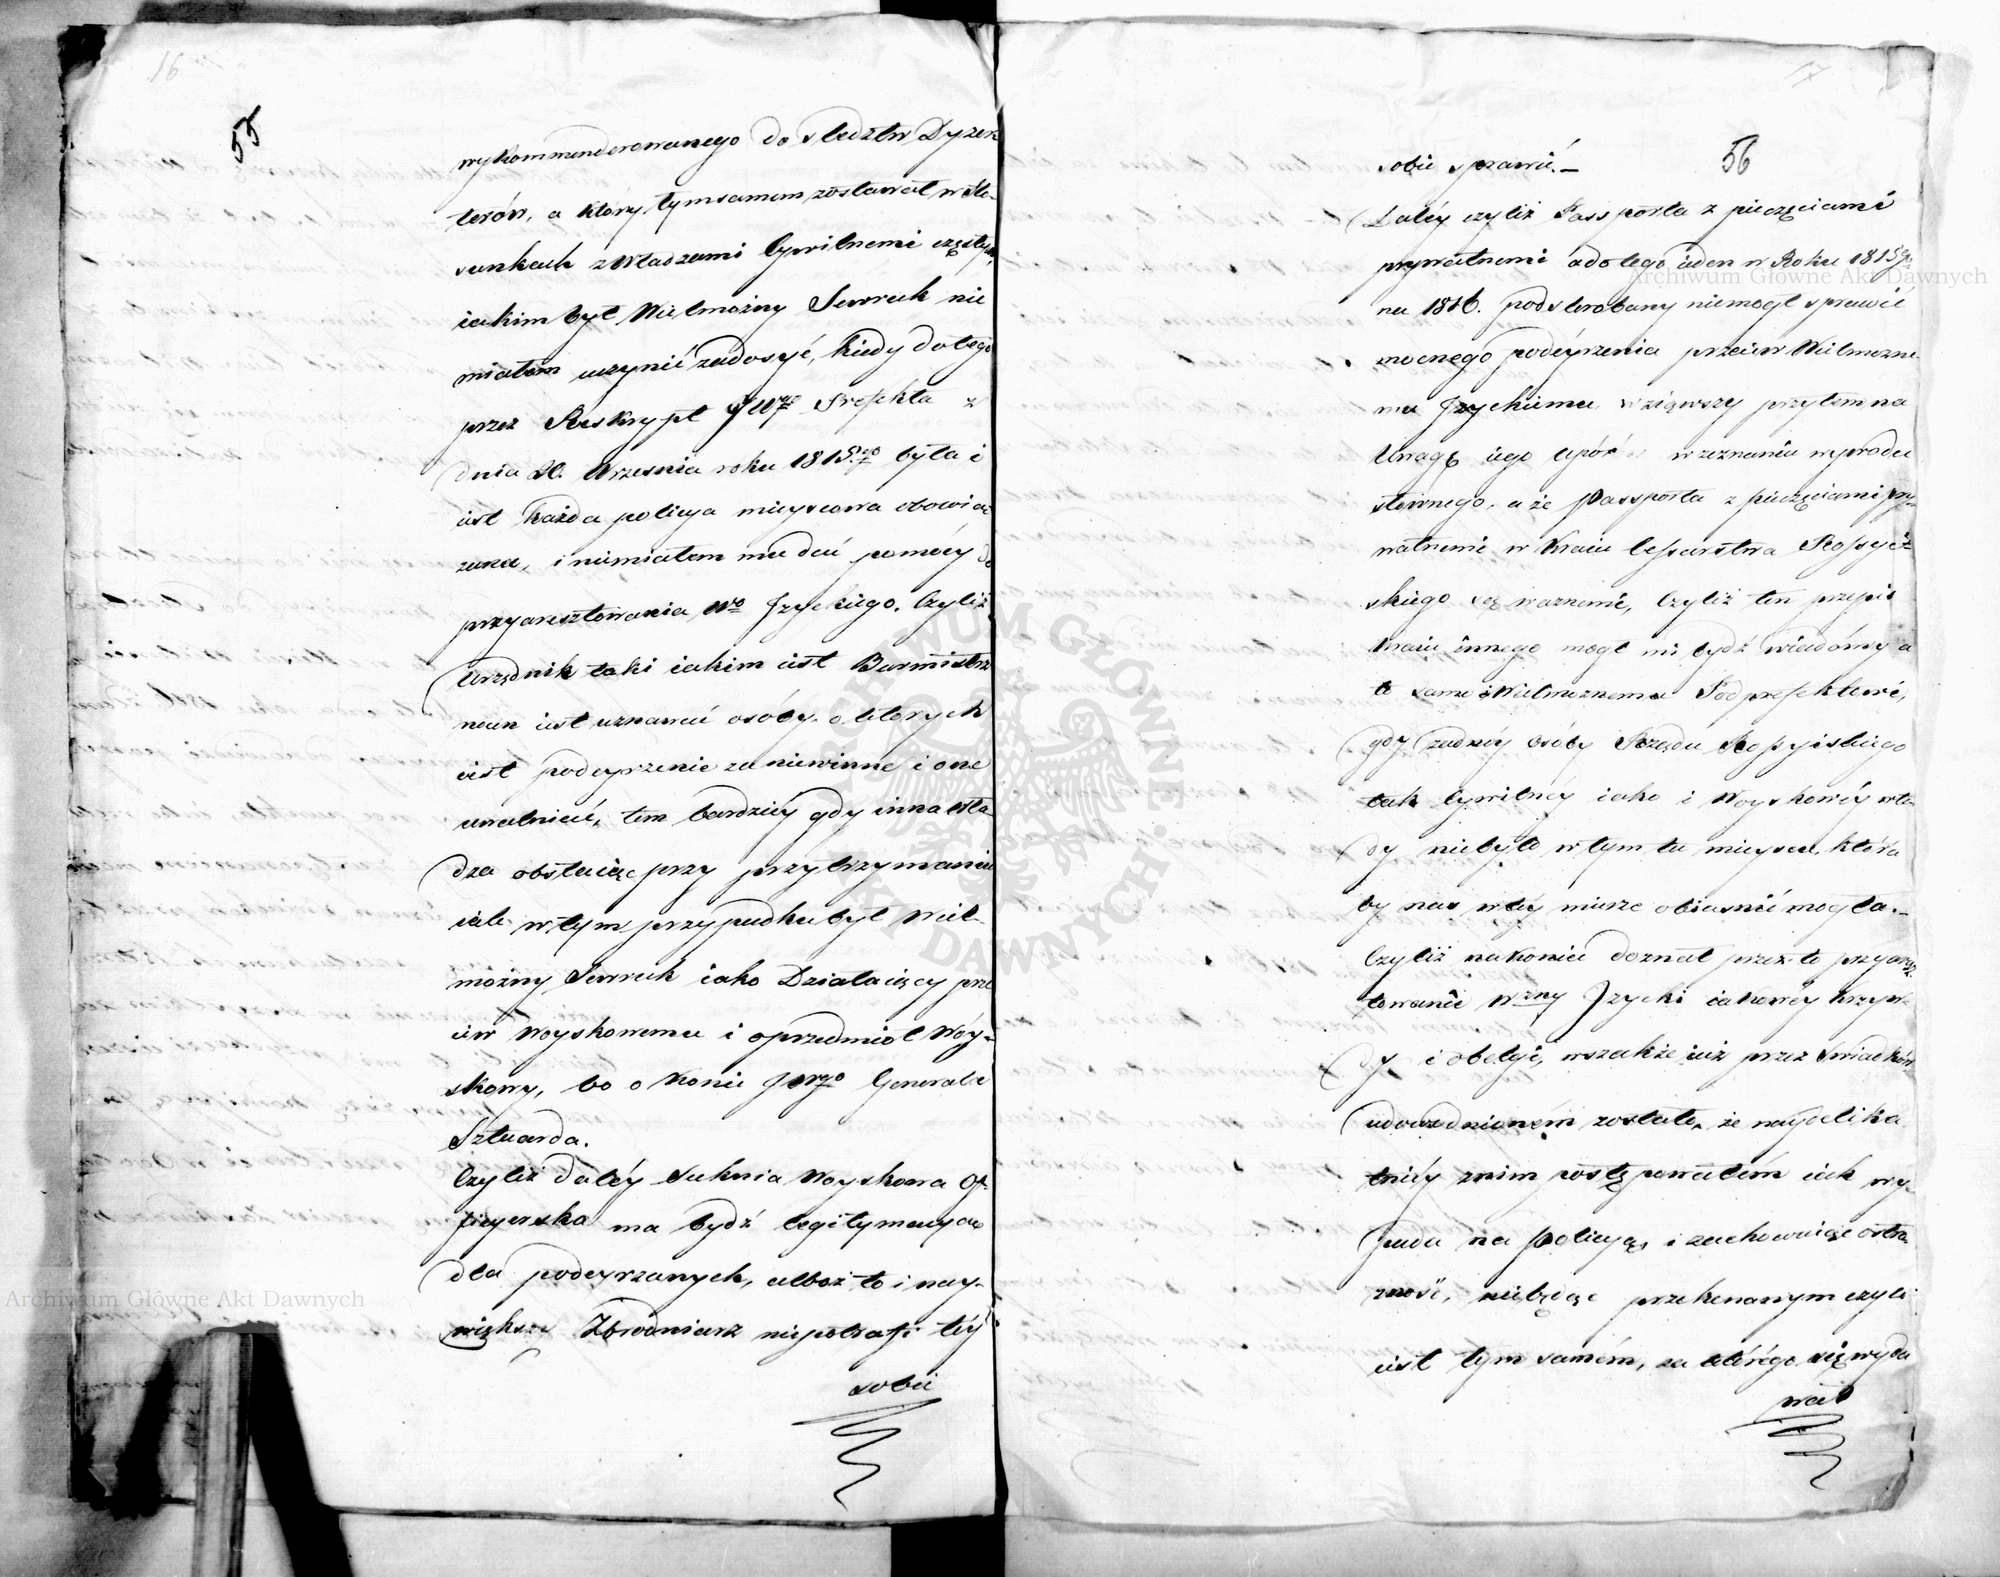 16
55
wykommenderowanego do sledztw Dyzer
terów, a który tymsamem zostawał w Sto-
sunkach z Władzami Cywilnemi częstych,
iakim był Wielmożny Sewruk nie
miałem uczynić zadosyć, kiedy do tego
przez Reskrypt JWgo Prefekta z
dnia 20. Wrzesnia roku 1815.go była i
iest każda policya mieyscowa obowią
zana, i niemiałem mu dać pomocy do
przyaresztowania Wo Jzyckiego. Czyliż
Urzędnik taki iakim iest Burmistrz
iest uznawać osóby, o ktorych
iest podeyrzenie za niewinne i one
uwalniać, tem bardziéy gdy inna Wła
dza obstaiąc przy przytrzymaniu
iak w tym przypadku był Wiel-
możny Sewruk iako Działaiący prze
ciw Woyskowemu i o przedmiot Wóy-
skowy, bo o Konie JWgo Generała
Sztuarda.
Czyliż daléy Suknia Woyskowa Of-
ficyerska ma bydź legitymacyą
dla podeyrzanych, alboż to i nay-
większy Zbrodniarz niepotrafi téy
sobie
17
56
sobie sprawić.-
Daléy czyliż Passporta z pieczęciami
prywatnemi a do tego ieden w Roku 1815go
na 1816. podskrobany niemogł sprawić
mocnego podeyrzenia przeciw Wielmożne
mu Jzyckiemu wziąwszy przytem na
Uwagę iego upór w zeznaniu
a że Passporta z pieczęciami pry-
watnemi w Kraiu Cessarstwa Rossyi-
skiego są waznemi, Czyliż ten przepis
Kraiu innego mogł mi bydź wiadómy a
to samo i Wielmoznemu Podprefektowi,
gdy żadnéy osóby Rządu Rossyiskiego
tak Cywilnéy iako i Woyskowéy wła
dzy niebyło w tym tu mieyscu, która
by nas w téy mierze obiasnić mogła.-
Czyliż nakoniec doznał przez to przyaresz
towanie Wzny Jzycki iakowéy krzyw-
dy i obelgi, wszakże iuż przez Swiadków
udowodnionem zostało, że naydelika
tniéy z nim postępowałem iak wy-
pada na Policyą, i zachowuiąc ostro
zność, niebędąc przekonanym czyli
iest tym samém, za którego się wyda
wał
Archiwum Główne Akt Dawnych
Archiwum Główne Akt Dawnych
ARCHIWUM GŁÓWNE AKT DAWNYCH